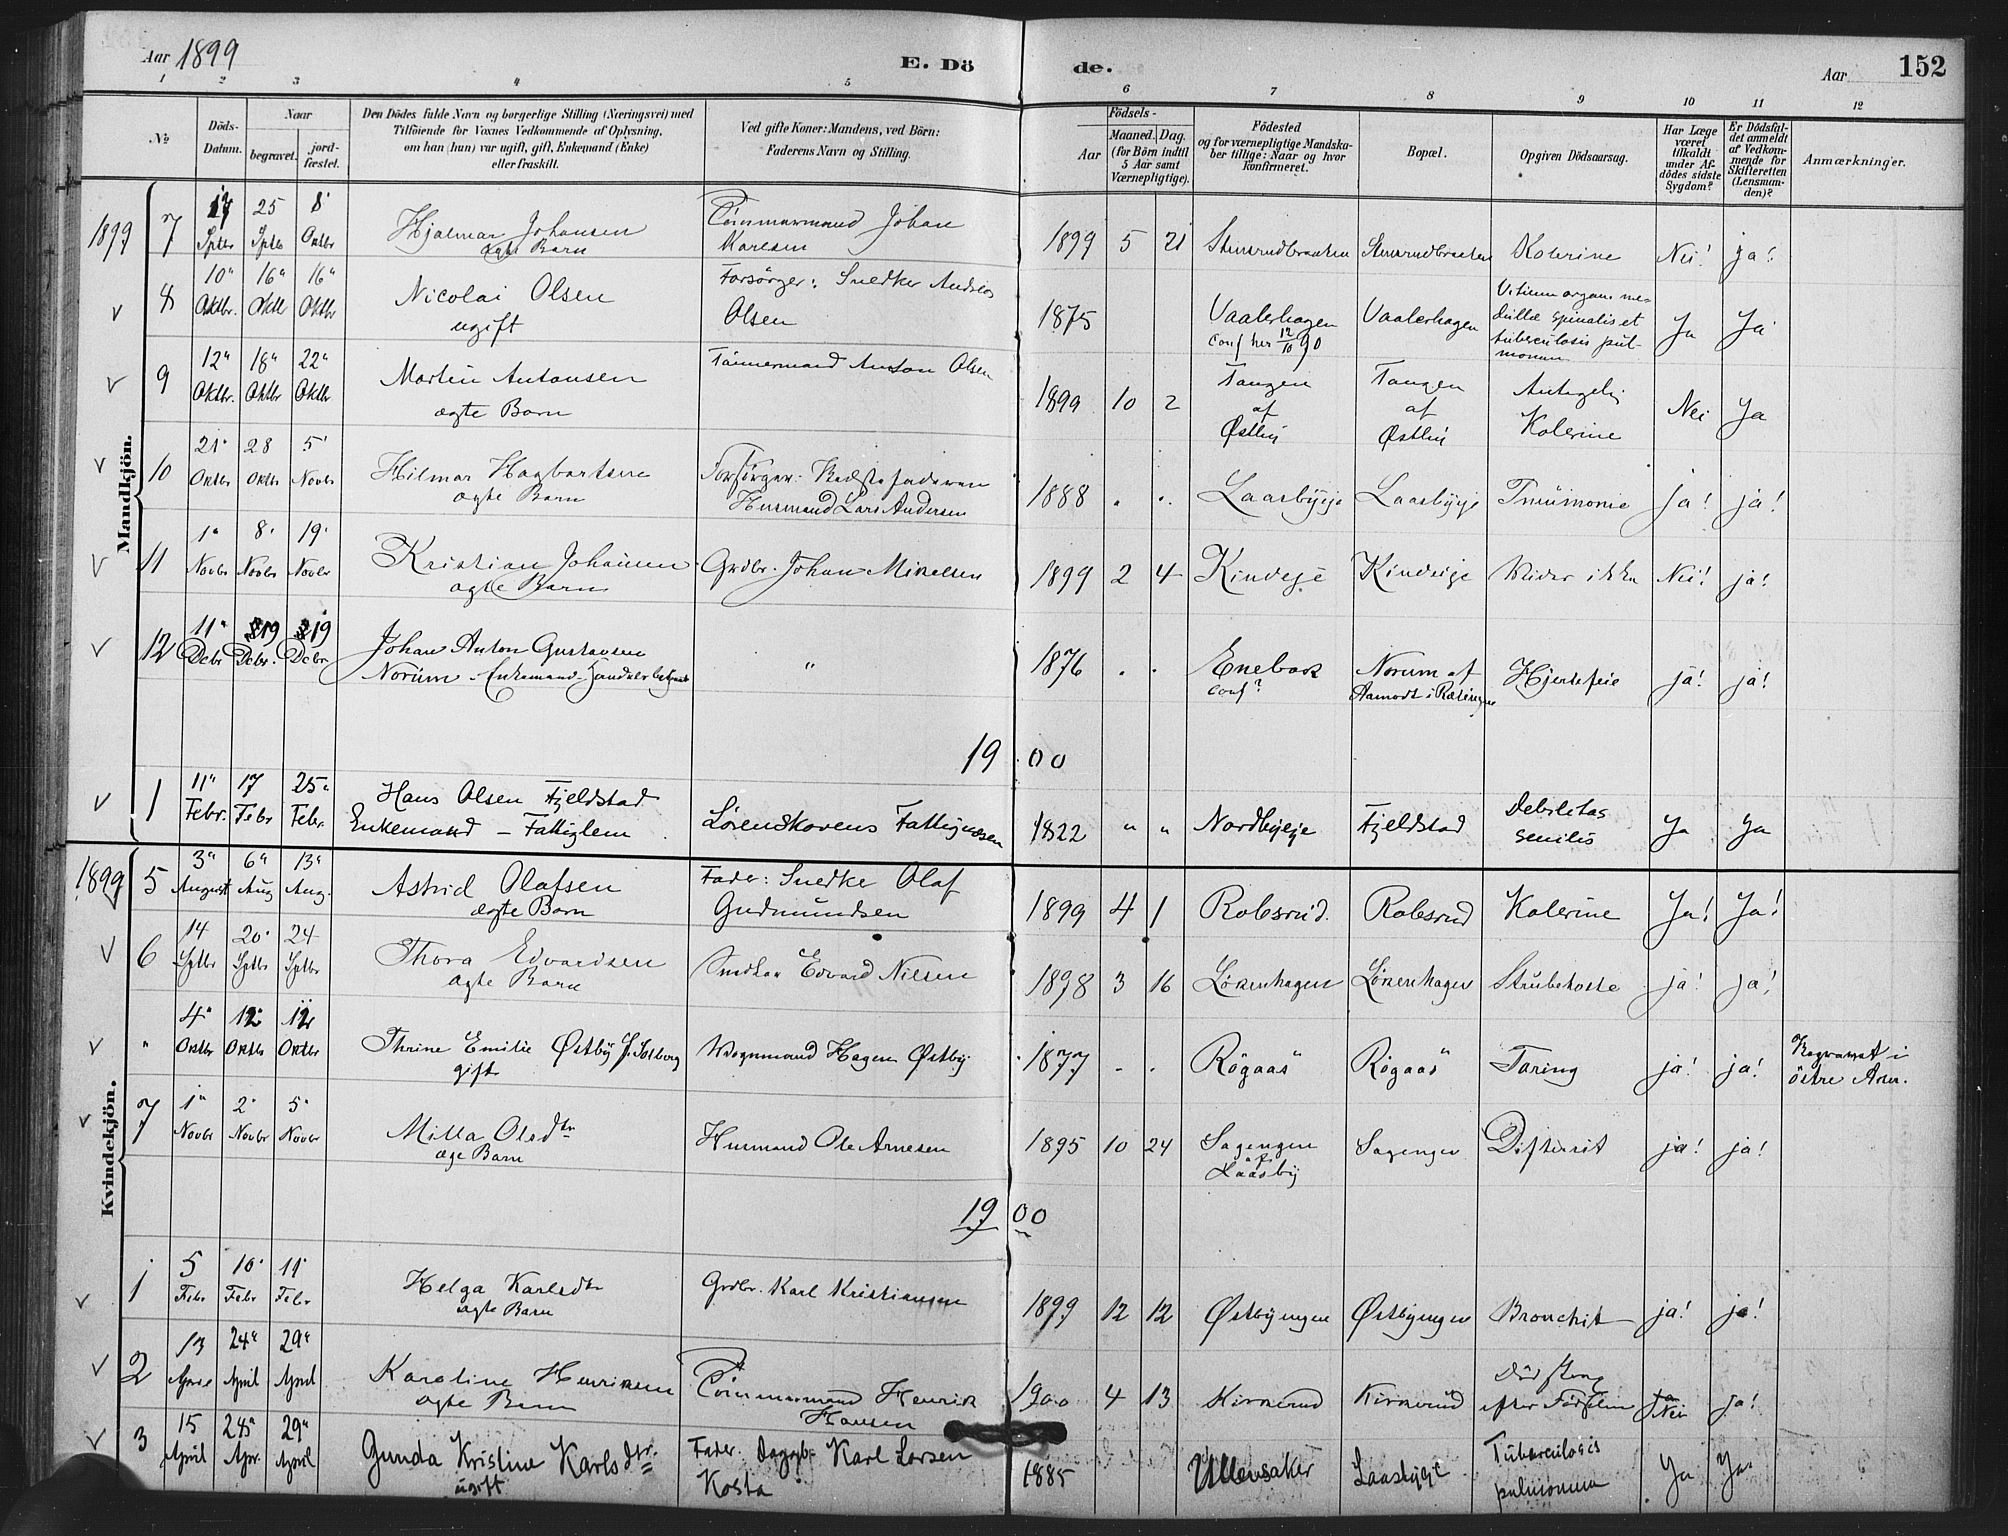 Aar 1899
E. Dö
de.
Aar
152
1 2 3 4 5 6 7 8 9 10 11 12
No
Döds-
Datum.
Naar
begravet.
jord-
fæstet.
Den Dödes fulde Navn og borgerlige Stilling (Næringsvei) med
Tilföiende for Voxnes Vedkommende af Oplysning,
om han (hun) var ugift, gift, Enkemand (Enke)
eller fraskilt.
Ved gifte Koner: Mandens, ved Börn:
Faderens Navn og Stilling.
Födsels-
Aar
Maaned. Dag.
(for Börn indtil
5 Aar samt
Værnepligtige).
Födested
og for værnepligtige Mandska-
ber tillige: Naar og hvor
konfirmeret.
Bopæl.
Opgiven Dödsaarsag.
Har Læge
været
tilkaldt
under Af-
dödes sidste
Sygdom?
Er Dödsfal-
det anmeldt
af Vedkom-
mende for
Skifteretten
(Lensman-
den)?
Anmærkninger.
Mandkjön.
1899 7 25 8
Sptbr Sptb Oktbr
Hjalmar Johansen
ægte Barn
Tömmermand Johan
Karlsen
1899 5 21 Stensrudbraaten Stensrudbraaten Kolerine Nei! ja!
8 10 16 16
Oktbr. Oktb Oktbr
Nicolai Olsen
ugift
Forsörger: Snedker Andreas
Olsen
1875 Vaalerhagen
conf her 12/10 90
Vaalerhagen
Vitium organ. me-
dullæ spinalis et
tuberculosis pul-
monum
Ja Ja
9 12 18 22
Oktbr. Oktbr Oktbr
Martin Antonsen
ægte Barn
Tömmermand Anton Olsen
1899 10 2 Tangen
af
Østby
Tangen
af
Østby
Antagelig
Kolerine
Nei Ja
10 21 28 5
Oktbr Oktbr Novbr
Hilmar Hagbartsen
ægte Barn
Forsörger: Bedstefaderen
Husmand Lars Andersen
1888 Laasbyeje Laasbyeje Pneumonie ja! ja!
11 1 8 19
Novbr Novbr Novbr
Kristian Johansen
ægte Barn
Grdbr. Johan Mikelsen
1899 2 4 Kindeje Kindeije Vides ikke Nei! ja!
12 11 19 19
Debr Debr. Debr
Johan Anton Gustavsen
Norum Enkemand
"
1876 Enebak
conf?
Norum af
Aamodt i Rælingen
Hjertefeil ja! ja!
19 00
1 11 17 25
Febr. Febr Febr.
Hans Olsen Fjeldstad
Enkemand - Fattiglem
Lörenskovens Fattigvæsen
1822 " " Nordbyeje Fjeldstad Debilitas
senilis
Ja Ja
Kvindekjön.
1899 5 3 6 13
August Aug Aug.
Astrid Olafsen
ægte Barn
Fader: Snedke Olaf
Gudmundsen
1899 4 1 Robsrud. Robsrud Kolerine Ja! Ja!
6 14 20 24
Sptbr Sptbr Sptbr
Thora Edvardsen
ægte Barn
Snedker Edvard Nilsen
1898 3 16 Lökenhagen Lökenhagen Strubehoste ja! ja!
" 4 12 12
Oktbr Oktbr Oktbr
Thrine Emilie Østby f. Solberg
gift
Vognmand Hagen Østby
1877 Rögaas Rögaas Tæring ja! ja!
Begravet i
östre Aker.
7 1 2 5
Novbr Novbr Novbr
Milla Olsdtr
æge Barn
Husmand Ole Arnesen
1895 10 24 Sagengen
af
Laasby
Sagengen Difterit ja! ja!
19 00
1 5 10 11
Febr Febr Febr
Helga Karlsdtr
ægte Barn
Grdbr. Karl Kristiansen
1899 12 12 Østbyengen Østbyengen Bronchit ja! ja!
2 13 24 29
April April April
Karoline Henriksen
ægte Barn
Tömmermand Henrik
Hansen
1900 4 13 Kirkerud Kirkerud
Död strag
efter Födselen
Nei ja!
3 15 24 29
April Apr. April
Gunda Kristine Karlsdtr.
ugift
Fader. Daggb. Karl Larsen
Kosta
1885 Ullensaker Laasbyeje Tuberculosis
pulmonum
Ja Ja